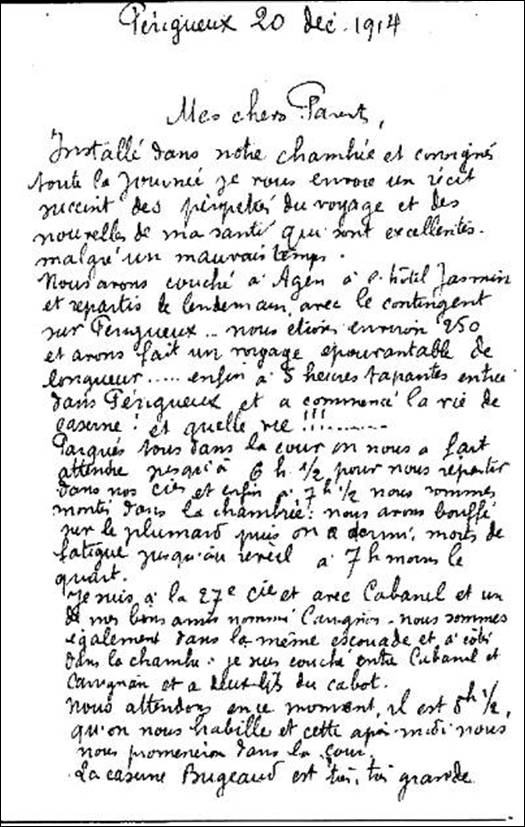 Périgueux 20 dec. 1914
Mes chers Parents,
Installé dans notre chambrée et consignés
toute la journée je vous envoie un récit
succint des péripeties du voyage et des
nouvelles de ma santé qui sont excellentes.
malgré un mauvais temps.
Nous avons couché à Agen à l'hôtel Jasmin
et repartis le lendemain, avec le contingent
sur Périgueux... nous etions environ 250
et avons fait un voyage epouvantable de
longueur..... enfin à 5 heures tapantes entrée
dans Périgueux et a commencé la vie de
caserne! et quelle vie!!!.........
Parqués tous dans la cour on nous a fait
attendre jusqu'à 6 h. 1/2 pour nous repartir
dans nos cies et enfin à 7h 1/2 nous sommes
montés dans la chambrée. nous avons bouffé
sur le plumard puis on a dormi, morts de
fatigue jusqu'au reveil à 7 h moins le
quart.
Je suis à la 27e Cie et avec Cabanel et un
de mes bons amis nommé Carrignon. nous sommes
également dans la même escouade et à côté
dans la chambre. je suis couché entre Cabanel et
Carrignan et a deux lits du cabot.
Nous attendons en ce moment, il est 8h 1/2,
qu'on nous habille et cette après-midi nous
nous promenerons dans la cour.
La caserne Bugeaud est très, très grande